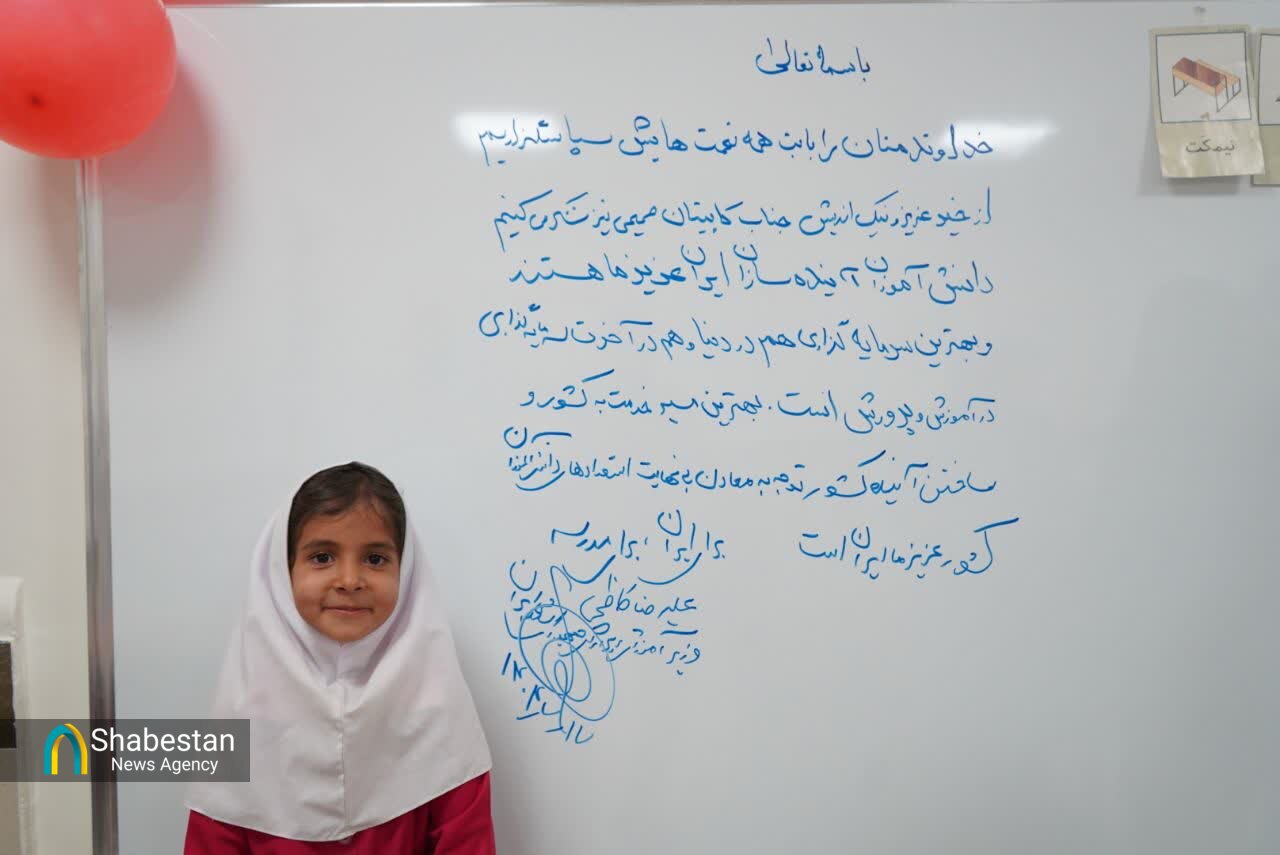 باسمه تعالی
خداوند منان را بابت همه نعمت هایش سپاسگزاریم
از خیر عزیز و نیک اندیش جناب کاپیتان صمیمی نیز تشکر می کنیم
دانش آموزان آینده سازان ایران عزیز ما هستند
و بهترین سرمایه گذاری هم در دنیا و هم در آخرت سرمایه گذاری
در آموزش و پرورش است. بهترین مسیر خدمت به کشور و
ساختن آینده کشور توجه به معادن بی نهایت استعدادهای دانش آموزان
کشور عزیز ما ایران است برای ایران، برای مدرسه
علیرضا کاظمی
وزیر آموزش و پرورش جمهوری اسلامی ایران
نیمکت
Shabestan
News Agency